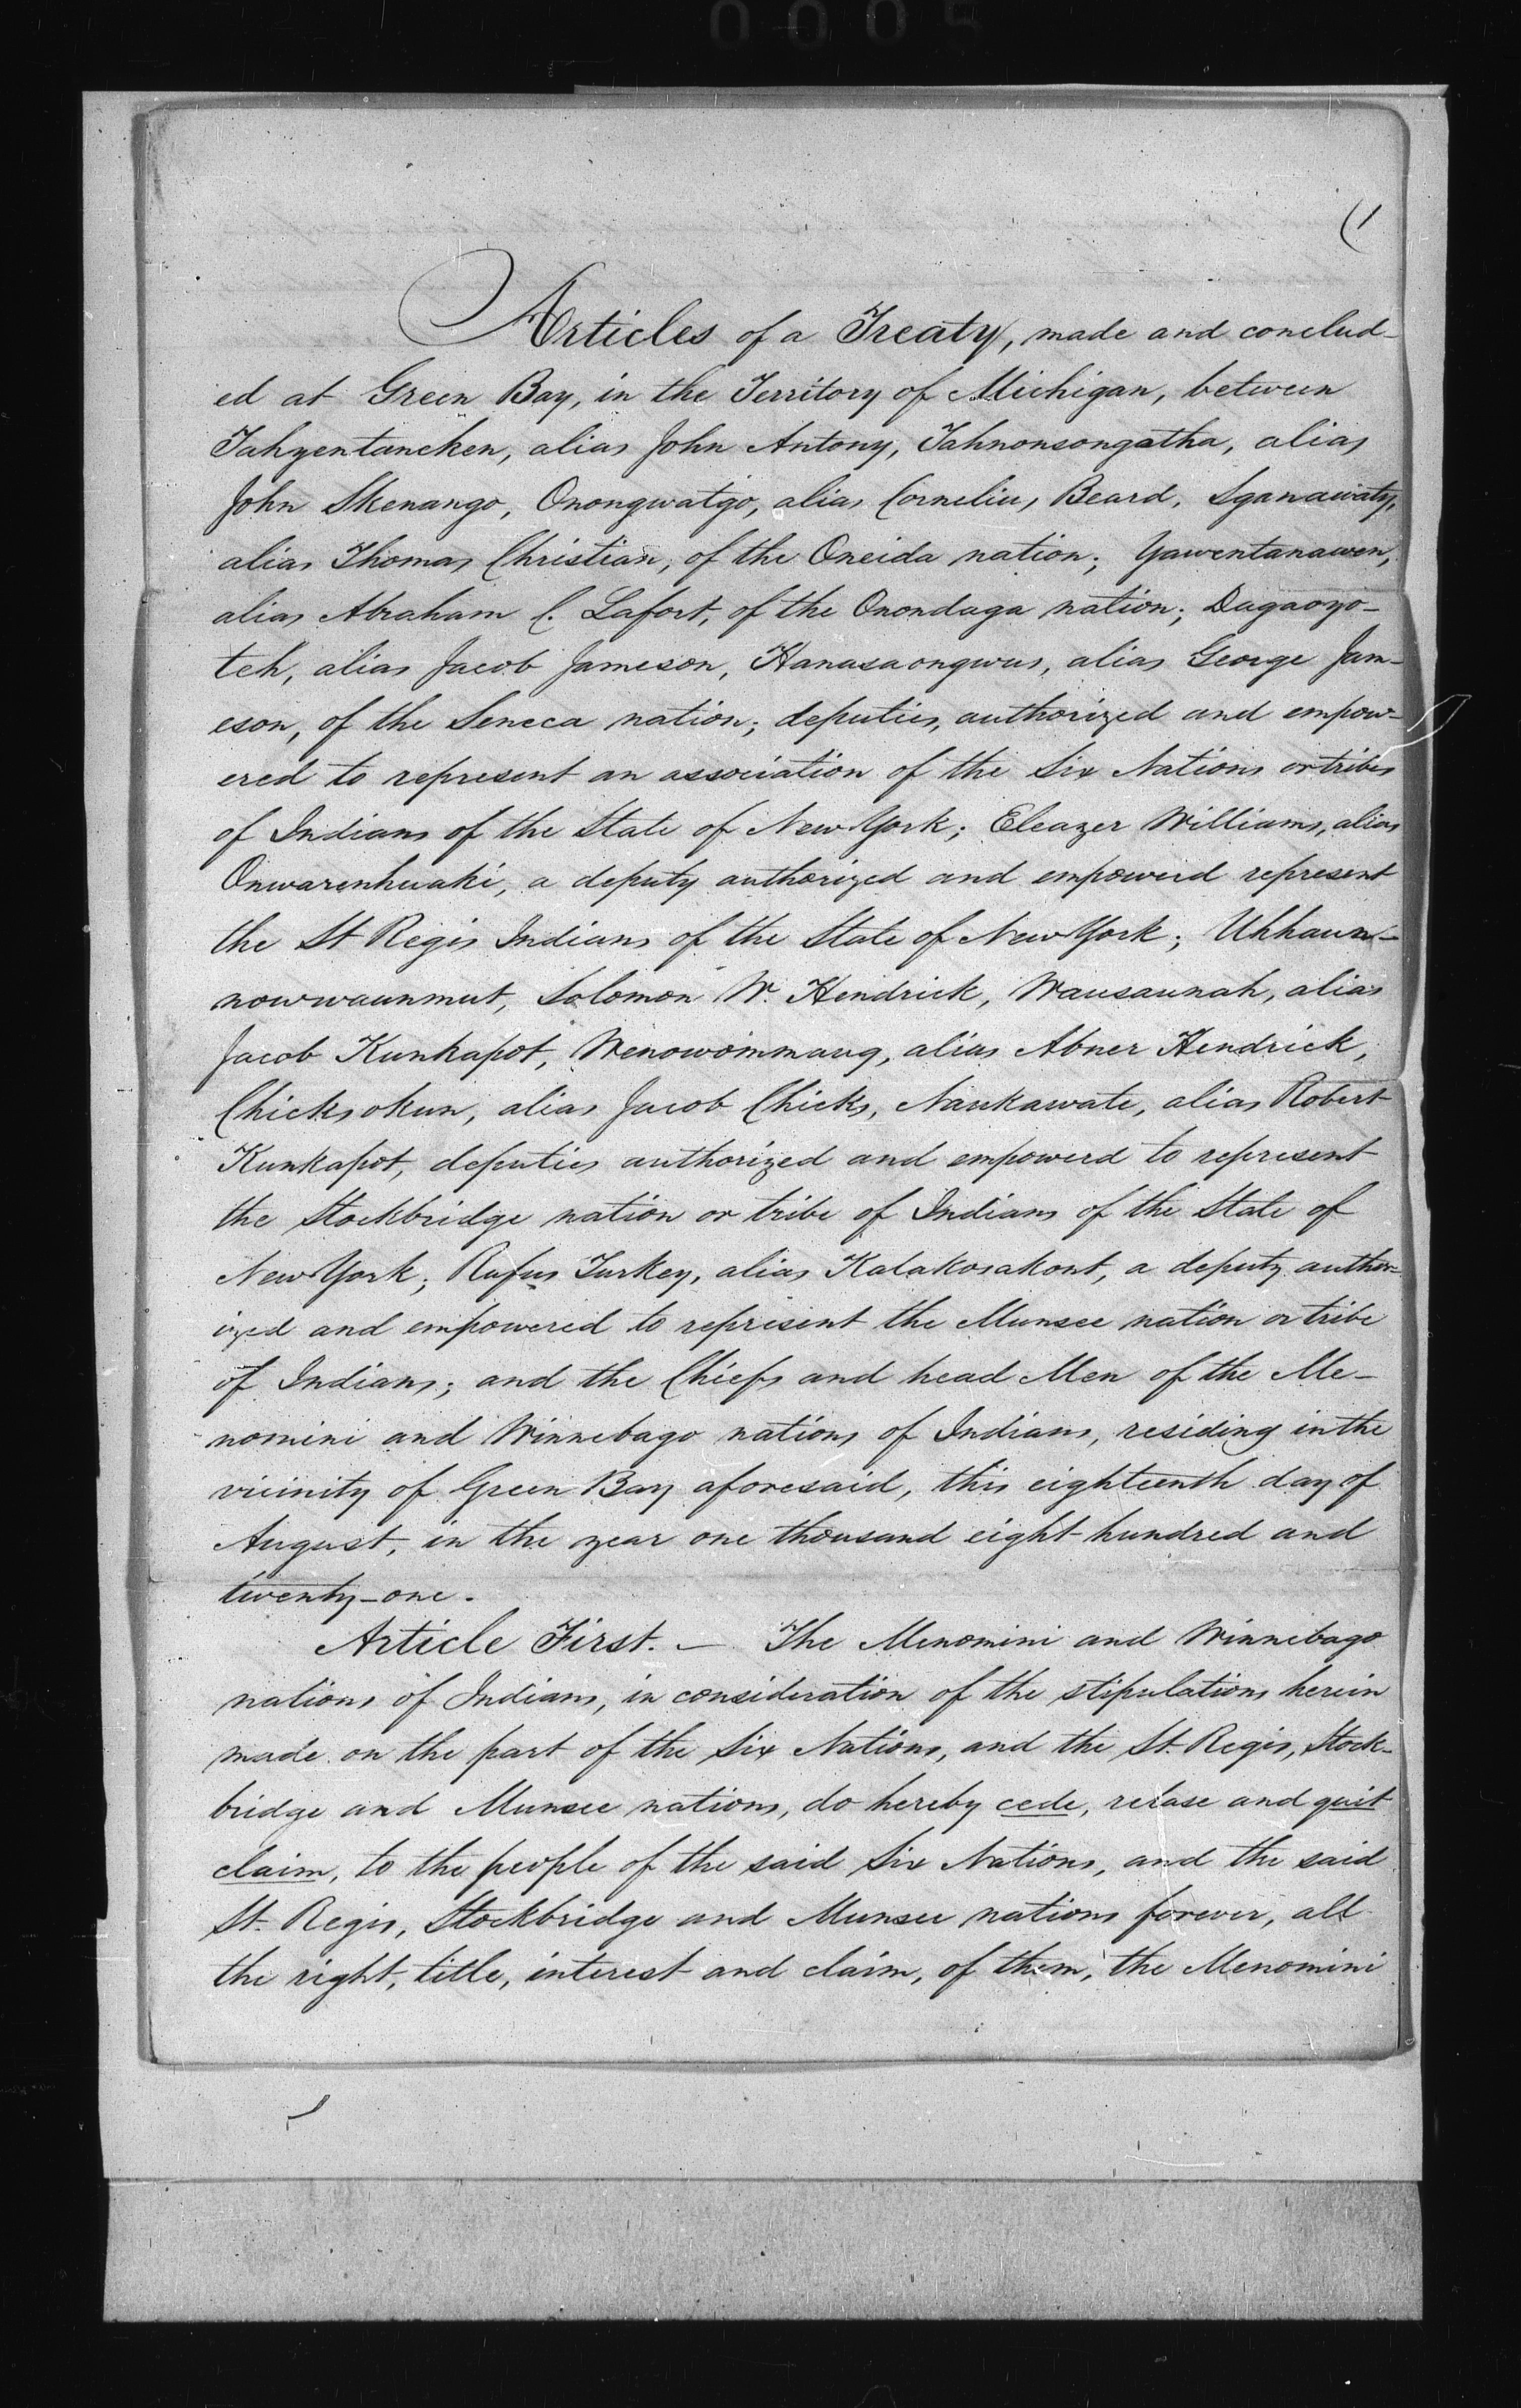 0005
(1
Articles of a Treaty, made and conclud-
ed at Green Bay, in the Territory of Michigan, between
Tahyentaneken, alias John Antony, Tahnonsongatha, alias
John Skenango, Onongwatgo, alias Cornelius Beard, Sganawaty,
alias Thomas Christian, of the Oneida nation; Yawentanawen,
alias Abraham C. Lafort, of the Onondaga nation; Dagaoyo-
teh, alias Jacob Jameson, Hanasaongwus, alias George Jam-
eson, of the Seneca nation; deputies, authorized and empow-
ered to represent an association of the Six Nations or tribes
of Indians of the State of New York; Eleazer Williams, alias
Onwarenhiiaki, a deputy authorized and empowerd represent
the St Regis Indians of the State of New York; Uhhaun-
nowwaunmut, Solomon W. Hendrick, Wausaunah, alias
Jacob Kunkapot, Wenowommaug, alias Abner Hendrick,
Chicksokun, alias Jacob Chicks, Naukawate, alias Robert
Kunkapot, deputies authorized and empowerd to represent
the Stockbridge nation or tribe of Indians of the State of
New York; Rufus Turkey, alias Katakosakont, a deputy author-
ized and empowered to represent the Munsee nation or tribe
of Indians; and the Chiefs and head Men of the Me-
nomini and Winnebago nations of Indians, residing in the
vicinity of Green Bay aforesaid, this eighteenth day of
August, in the year one thousand eight hundred and
twenty-one.
Article First. — The Menomini and Winnebago
nations of Indians, in consideration of the stipulations herein
made on the part of the Six Nations, and the St. Regis, Stock-
bridge and Munsee nations, do hereby cede, relase and quit
claim, to the people of the said Six Nations, and the said
St. Regis, Stockbridge and Munsee nations forever, all
the right, title, interest and claim, of them, the Menomini